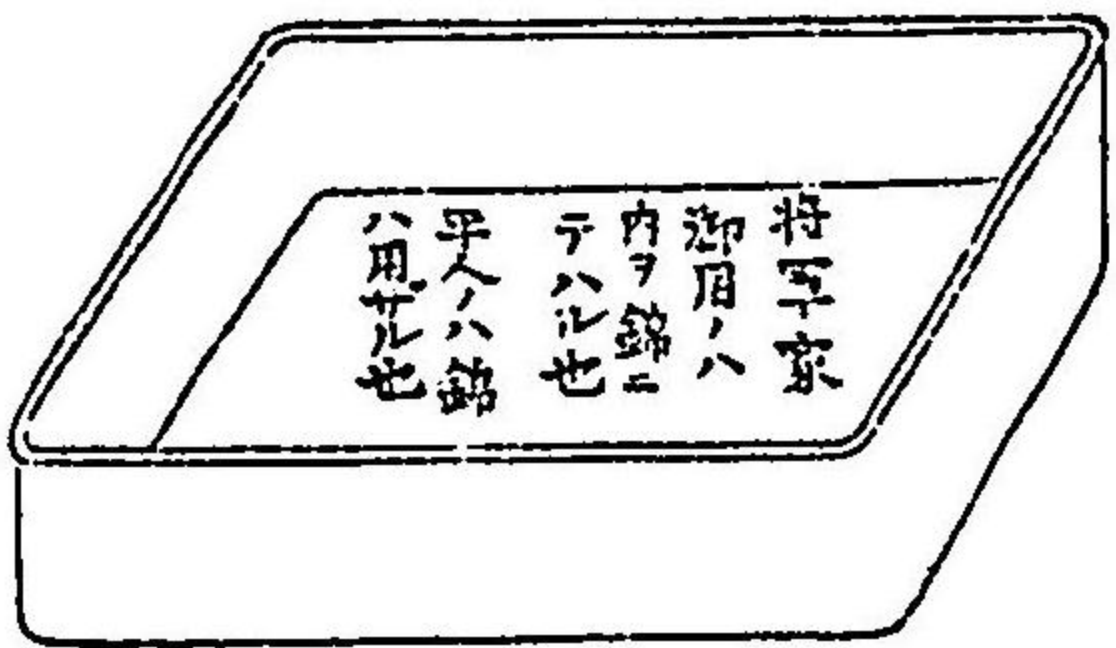 将軍家
御用ノハ
内ヲ錦ニ
テハル也
平人ノハ錦
ハ用ザル也